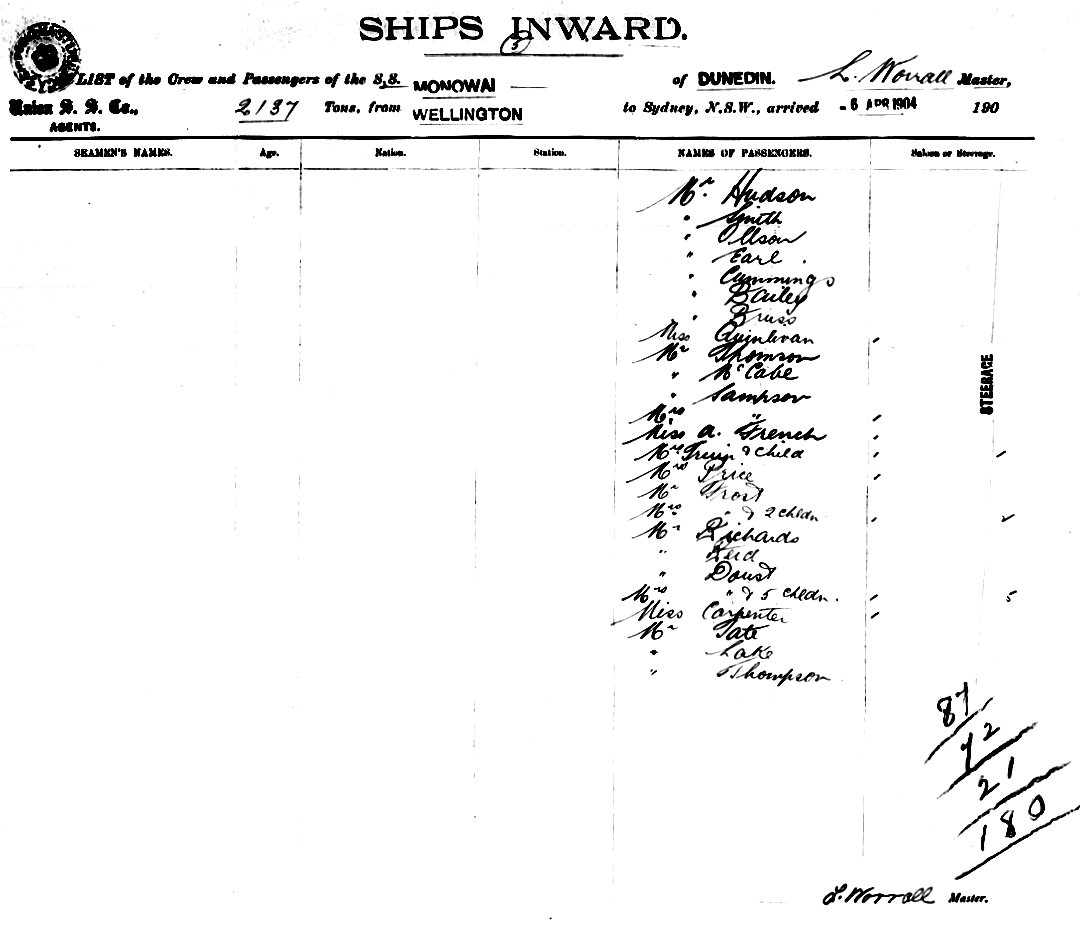 SHIPS INWARD.
(5)
LIST of the Crew and Passengers of the S.S. MONOWAI of DUNEDIN. L. Worrall Master,
Union S. S. Co., AGENTS. 2137 Tons, from WELLINGTON to Sydney, N.S.W., arrived - 6 APR 1904 190
SEAMEN'S NAMES. Age. Nation. Station. NAMES OF PASSENGERS. Saloon or Steerage.
Mr. Hudson
" Smith
" Ollson
" Earl
" Cummings
" Bailey
"
Miss Quinlivan
Mr Thomson
" McCabe
" Sampson
STEERAGE
Mrs "
Miss A. French
& Child
Mrs Price
Mr Frost
Mrs " & 2 Chldn
Mr Richards
" Reid
" Doust
Mrs " & 5 Chldn. 5
Miss Carpenter
Mr Tate
" Lake
" Thompson
87
72
21
180
L. Worrall Master.